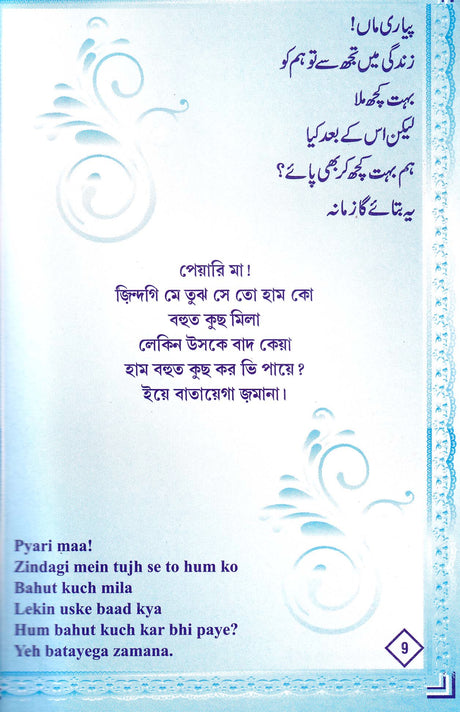 پیاری ماں!
زندگی میں تجھ سے تو ہم کو
بہت کچھ ملا
لیکن اس کے بعد کیا
ہم بہت کچھ کر بھی پائے؟
یہ بتائے گا زمانہ
পেয়ারি মা!
জ়িন্দগি মে তুঝ সে তো হাম কো
বহুত কুছ মিলা
লেকিন উসকে বাদ কেয়া
হাম বহুত কুছ কর ভি পায়ে?
ইয়ে বাতায়েগা জ়মানা।
Pyari maa!
Zindagi mein tujh se to hum ko
Bahut kuch mila
Lekin uske baad kya
Hum bahut kuch kar bhi paye?
Yeh batayega zamana.
9